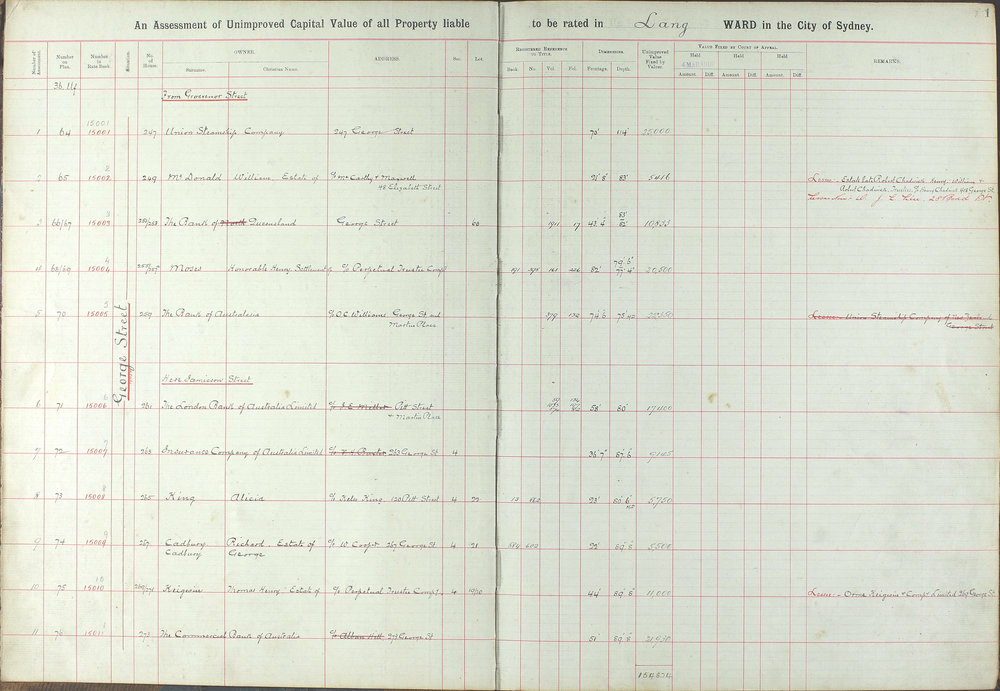 An Assessment of Unimproved Capital Value of all Property liable to be rated in Lang WARD in the City of Sydney.
1
Number of Assessment. Number on Plan. Number in Rate Book. Situation. No. of House. OWNER. Surname. Christian Name. ADDRESS. Sec. Lot. REGISTERED REFERENCE TO TITLE. Book. No. Vol. Fol. DIMENSIONS. Frontage. Depth. Unimproved Value Fixed by Valuer. VALUE FIXED BY COURT OF APPEAL. Held Amount. Diff. Held Amount. Diff. Held Amount. Diff. REMARKS.
From Grosvenor Street
15001
1 64 15001 247 Union Steamship Company 247 George Street 70' 114 25,000
2
2 65 15002 249 McDonald William Estate of c/o McCarthy & Maxwell 21' 8" 83' 5416
48 Elizabeth Street
Lessee - Estate late Robert Chadwick Henry William &
Robert Chadwick Trustees
3
3 66/67 15003 251/253 The Bank of North Queensland George Street 60 1911 17 43' 4" 83' 82' 10,833
4
4 68/69 15004 Moses Honorable Henry Settlement c/o Perpetual Trustee Compy 191 195 82' 79' 6" 77' 4" 20,500
George Street
5
5 70 15005 259 The Bank of Australasia c/o O.C. Williams George St and 74' 6"
Martin Place
Lessee - Union Steamship Company of New Zealand
George Street
Here Jamieson Street
6
6 71 15006 261 The London Bank of Australia Limited Pitt Street 58' 80' 17,400
& Martin Place
7
7 72 15007 263 Insurance Company of Australia Limited 263 George St 4 36' 7" 87' 6"
8
8 73 15008 265 King Alicia c/o Kelso King 120 Pitt Street 4 22 13 23' 5,750
9
9 74 15009 267 Cadbury Richard Estate of c/o W Cooper 267 George St 4 21 586 600 22' 89' 8" 5,500
Cadbury George
10
10 75 15010 269/271 Keigwin Thomas Henry - Estate of c/o Perpetual Trustee Compy 4 19/20 44' 89' 8" 11,000
Lessee - Orme Keigwin & Compy Limited 269 George St
11 76 15011 273 The Commercial Bank of Australia 273 George St 51 89' 8"
154804